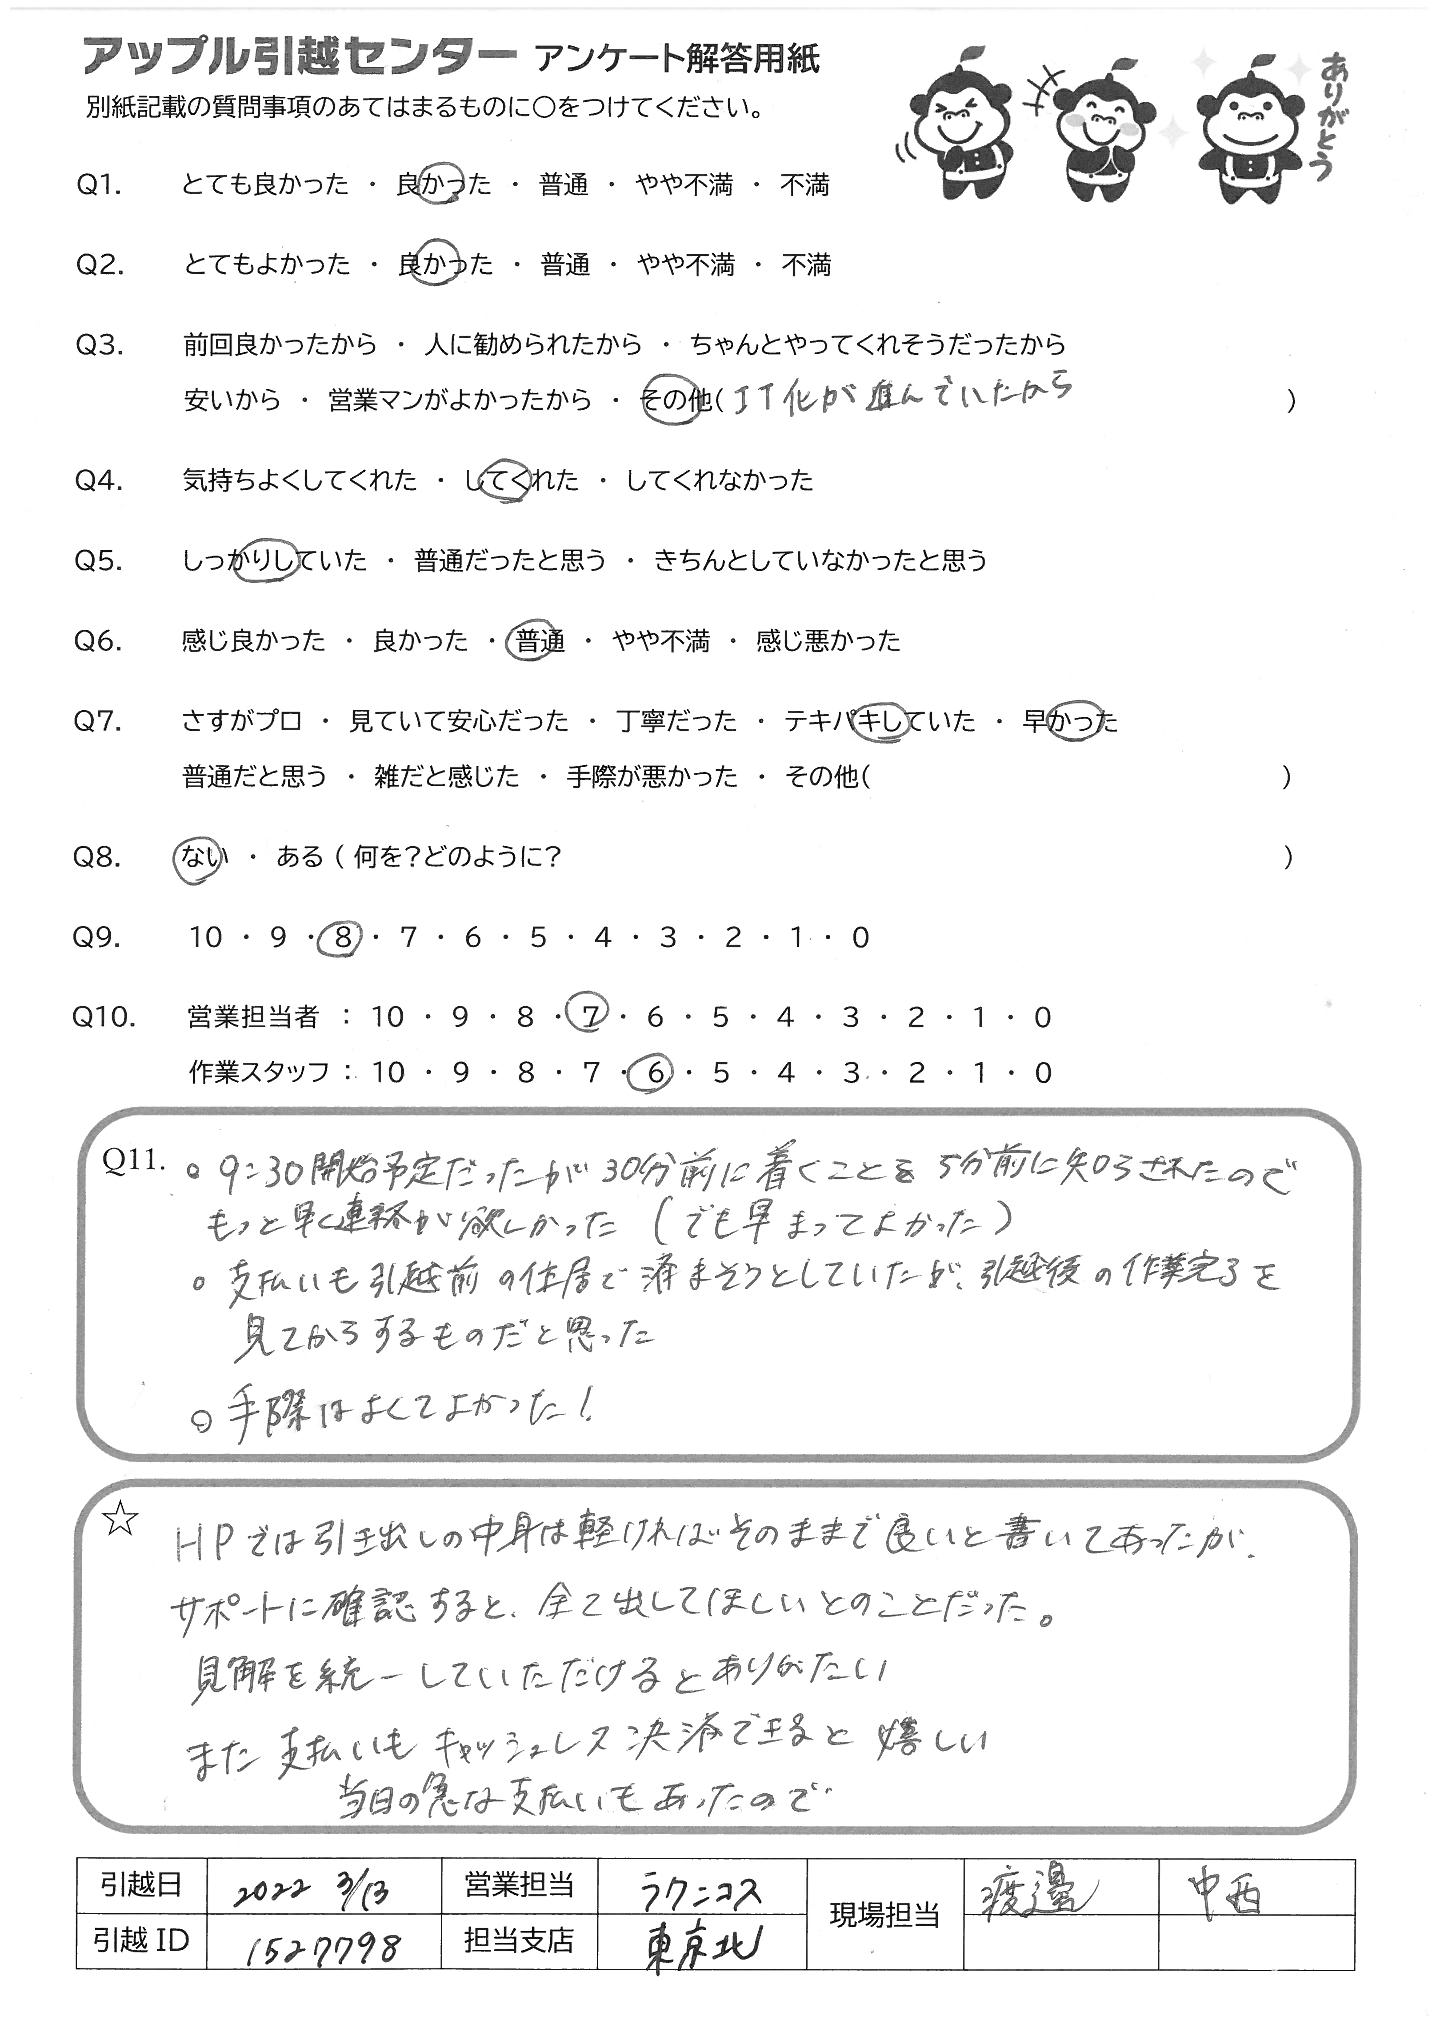 アップル引越センター アンケート解答用紙
ありがとう
別紙記載の質問事項のあてはまるものに〇をつけてください。
Q1. とても良かった ・ 良かった ・ 普通 ・ やや不満 ・ 不満
Q2. とてもよかった ・ 良かった ・ 普通 ・ やや不満 ・ 不満
Q3. 前回良かったから ・ 人に勧められたから ・ ちゃんとやってくれそうだったから
安いから ・ 営業マンがよかったから ・ その他( IT化が進んでいたから )
Q4. 気持ちよくしてくれた ・ してくれた ・ してくれなかった
Q5. しっかりしていた ・ 普通だったと思う ・ きちんとしていなかったと思う
Q6. 感じ良かった ・ 良かった ・ 普通 ・ やや不満 ・ 感じ悪かった
Q7. さすがプロ ・ 見ていて安心だった ・ 丁寧だった ・ テキパキしていた ・ 早かった
普通だと思う ・ 雑だと感じた ・ 手際が悪かった ・ その他( )
Q8. ない ・ ある ( 何を?どのように? )
Q9. 10 ・ 9 ・ 8 ・ 7 ・ 6 ・ 5 ・ 4 ・ 3 ・ 2 ・ 1 ・ 0
Q10. 営業担当者 : 10 ・ 9 ・ 8 ・ 7 ・ 6 ・ 5 ・ 4 ・ 3 ・ 2 ・ 1 ・ 0
作業スタッフ : 10 ・ 9 ・ 8 ・ 7 ・ 6 ・ 5 ・ 4 ・ 3 ・ 2 ・ 1 ・ 0
Q11. ○ 9:30開始予定だったが30分前に着くことを5分前に知らされたので
もっと早く連絡が欲しかった (でも早まってよかった)
○ 支払いも引越前の住居で済まそうとしていたが、引越後の作業完了を
見てからするものだと思った
○ 手際はよくてよかった!
☆ HPでは引き出しの中身は軽ければそのままで良いと書いてあったが、
サポートに確認すると、全て出してほしいとのことだった。
見解を統一していただけるとありがたい
また支払いもキャッシュレス決済できると嬉しい
当日の急な支払いもあったので
引越日 2022 3/13 営業担当 ラクニコス 現場担当 渡邉 中西
引越ID 1527798 担当支店 東京北